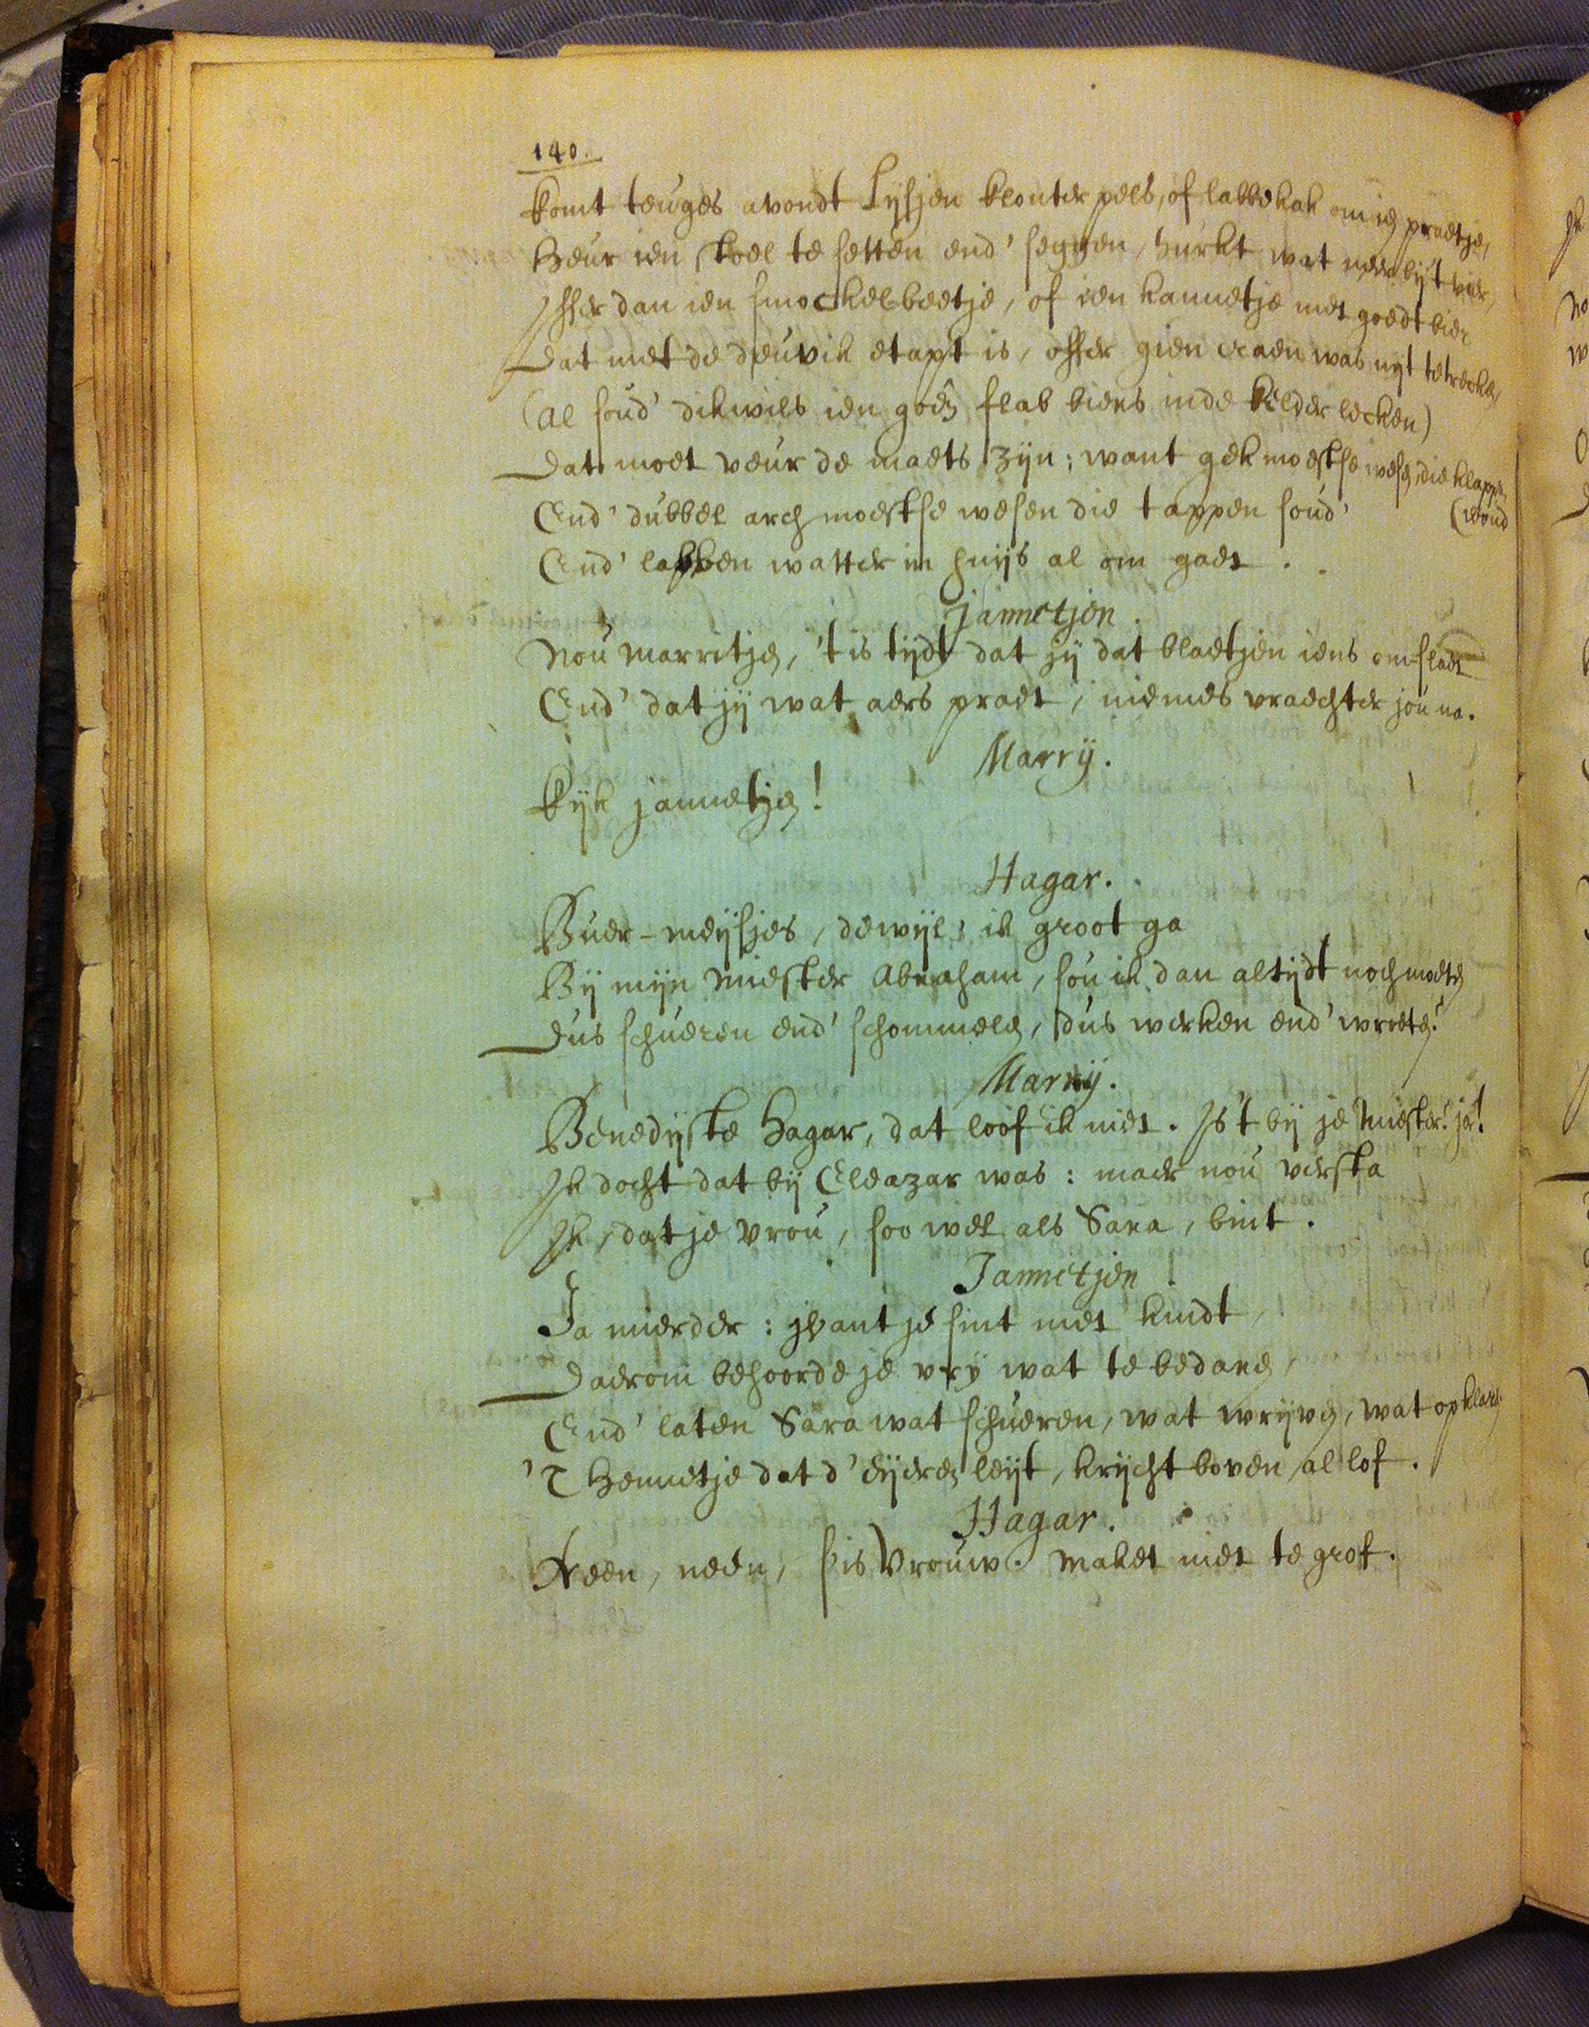 140.
Komt teuges avondt Lijsjen klonter pels, of labbekak om ien praetje,
Heur ien stoel te setten end' seggen, hurkt wat neer bij't vier,
Isser dan ien smockelbeetje, of ien kannetje met goedt bier
Dat met de deuvik etapt is, offer gien craen was uijt te trecken,
(Al soud' dikwils ien goên slab biers inde kelder lecken)
Dat moet veur de maets zijn; want gek moestse wesen, die klappen
(woud
End' dubbel arch moestse wesen die tappen soud'
End' labben watter in huijs al om gaet.
Jannetjen.
Nou Marritjen, 't is tijdt dat jij dat blaetjen iens omslaet
End' dat jij wat aers praet, niemes vraechter jou na.
Marrij.
Kijk jannetjen!
Hagar.
Buer-meijsjes, dewijl, ik groot ga
Bij mijn Miester Abraham, sou ik dan altijdt noch moeten
Dus schueren end' schommelen, dus werken end' wroeten?
Marrij.
Benedijste Hagar, dat loof ik niet. Is't bij je Miester? ja!
Ik docht dat bij Eleazar was: maer nou versta
Ik, dat je vrou, soo wel als Sara, bint.
Jannetjen
Ja mierder: want je sint met kindt,
Daerom behoorde je vrij wat te bedaren,
End' laten Sara wat schueren, wat wrijven, wat opklaren.
'T Hennetje dat d' eijeren leijt, krijcht boven al lof.
Hagar.
Neen, neen, sis Vrouw. Maket niet te grof.